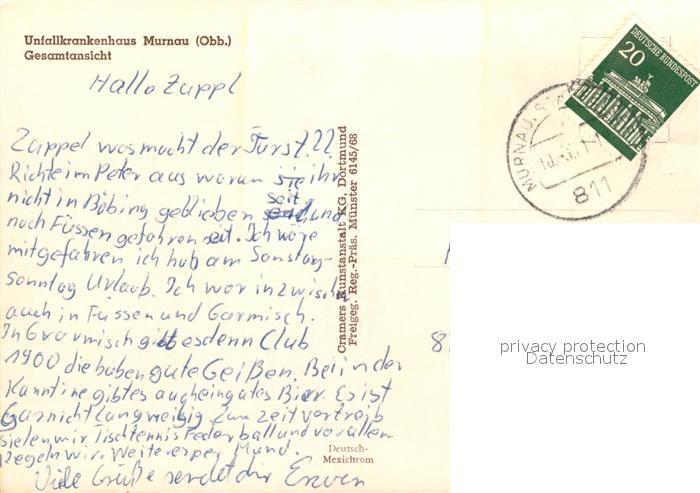 Unfallkrankenhaus Murnau (Obb.)
Gesamtansicht
Hallo Zuppl
Zuppel was macht der Fürst.??
Richte im Peter aus warum ihr
nicht in Böbing geblieben seit und
nach Füssen gefahren seit. Ich wäre
mitgefahren ich hab am Samstag-
sonntag Urlaub. Ich war inzwischen
auch in Füssen und Garmisch.
In Grarmisch gibt es denn Club
1900 die haben gute Geißen. Bei in der
Kanntine gibt es auch ein gutes Bier. Es ist
Garnicht langweilig Zum Zeit vertreib
sielen wir Tischtennis Federball und vor allen
Kegeln wir. Weiteres per Mund.
Viele Grüße sendet dir Erwin
Cramers Kunstanstalt KG, Dortmund
Freigeg. Reg.-Präs. Münster 6145/68
Deutsch-
Mexichrom
DEUTSCHE BUNDESPOST
20
MURNAU
811
8
privacy protection
Datenschutz